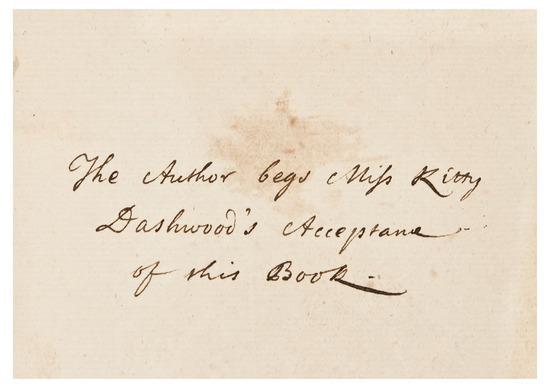 The Author begs Miſs Kitty
Dashwood's Acceptance -
of this Book -